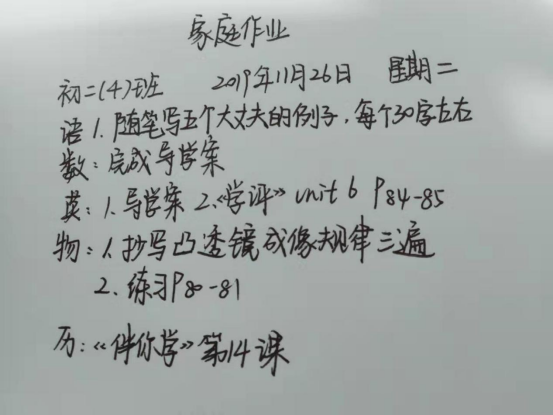 家庭作业
初二(4)班 2019年11月26日 星期二
语1.随笔写五个大丈夫的例子,每个30字左右
数:完成导学案
英:1.导学案 2.《学评》unit 6 P84-85
物:1.抄写凸透镜成像规律三遍
2.练习P80-81
历:《伴你学》第14课